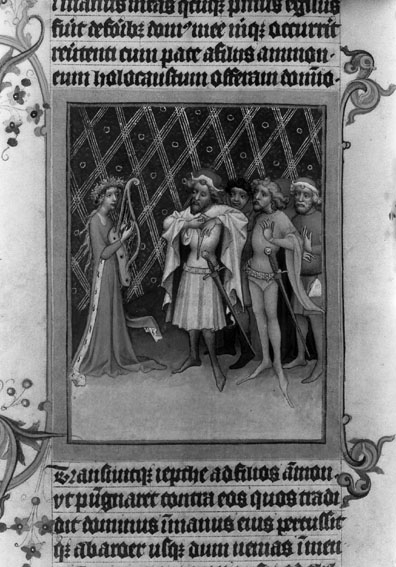 manus meas primus
fuit de foribz dom' mee miq; occurrit
reūtenti cum pace a filiis ammon
eum holocaustum offeram domīo.
Transiuitq; iepthe ad filios āmon
vt pugnaret contra eos quos tradi
dit dominus īmanus eius percussit
q; ab aroer usq; dum uenias ī men